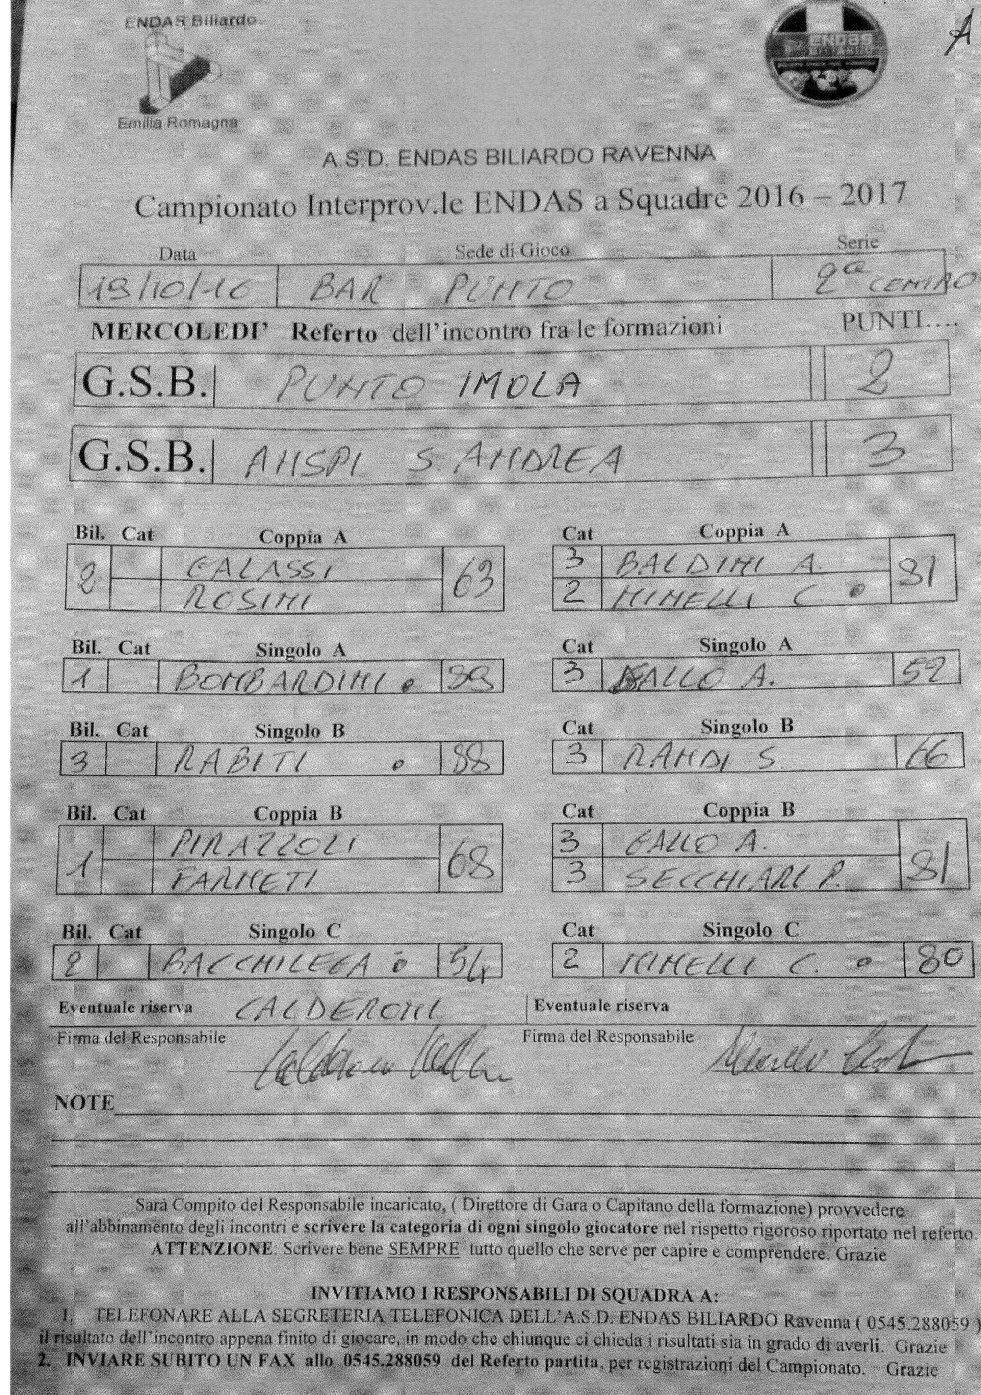 ENDAS Biliardo
Emilia Romagna
ENDAS
A
A.S.D. ENDAS BILIARDO RAVENNA
Campionato Interprov.le ENDAS a Squadre 2016 – 2017
Data Sede di Gioco Serie
19/10/16 BAR PUNTO 2ª CENTRO
MERCOLEDI' Referto dell'incontro fra le formazioni PUNTI....
G.S.B. PUNTO IMOLA 2
G.S.B. ANSPI S. ANDREA 3
Bil. Cat Coppia A Cat Coppia A
2 GALASSI 63 3 BALDINI A. 81
ROSINI 2 MINELLI C
Bil. Cat Singolo A Cat Singolo A
1 BOMBARDINI 3 GALLO A. 52
Bil. Cat Singolo B Cat Singolo B
3 RABITI 88 3 RANDI S 66
Bil. Cat Coppia B Cat Coppia B
1 PIRAZZOLI 68 3 GALLO A. 81
FARNETI 3 SECCHIARI P.
Bil. Cat Singolo C Cat Singolo C
2 BACCHILEGA 54 2 MINELLI C. 80
Eventuale riserva CALDERONI Eventuale riserva
Firma del Responsabile Firma del Responsabile
NOTE
Sarà Compito del Responsabile incaricato, ( Direttore di Gara o Capitano della formazione) provvedere
all'abbinamento degli incontri e scrivere la categoria di ogni singolo giocatore nel rispetto rigoroso riportato nel referto.
ATTENZIONE: Scrivere bene SEMPRE tutto quello che serve per capire e comprendere. Grazie
INVITIAMO I RESPONSABILI DI SQUADRA A:
1. TELEFONARE ALLA SEGRETERIA TELEFONICA DELL'A.S.D. ENDAS BILIARDO Ravenna ( 0545.288059 )
il risultato dell'incontro appena finito di giocare, in modo che chiunque ci chieda i risultati sia in grado di averli. Grazie
2. INVIARE SUBITO UN FAX allo 0545.288059 del Referto partita, per registrazioni del Campionato. Grazie